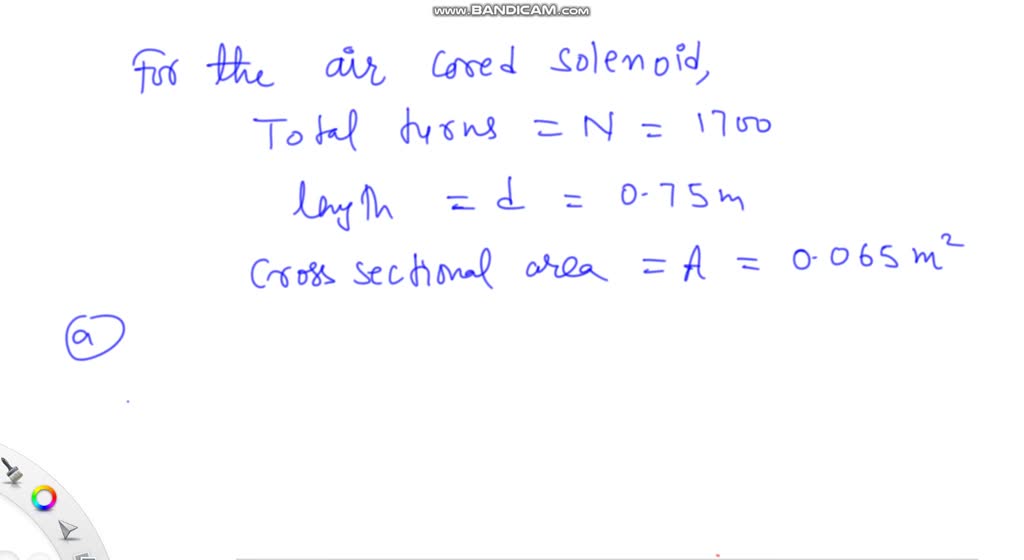 www.BANDICAM.com
For the air cored solenoid,
Total turns = N = 1700
length = d = 0.75m
Cross sectional area = A = 0.065 m²
a